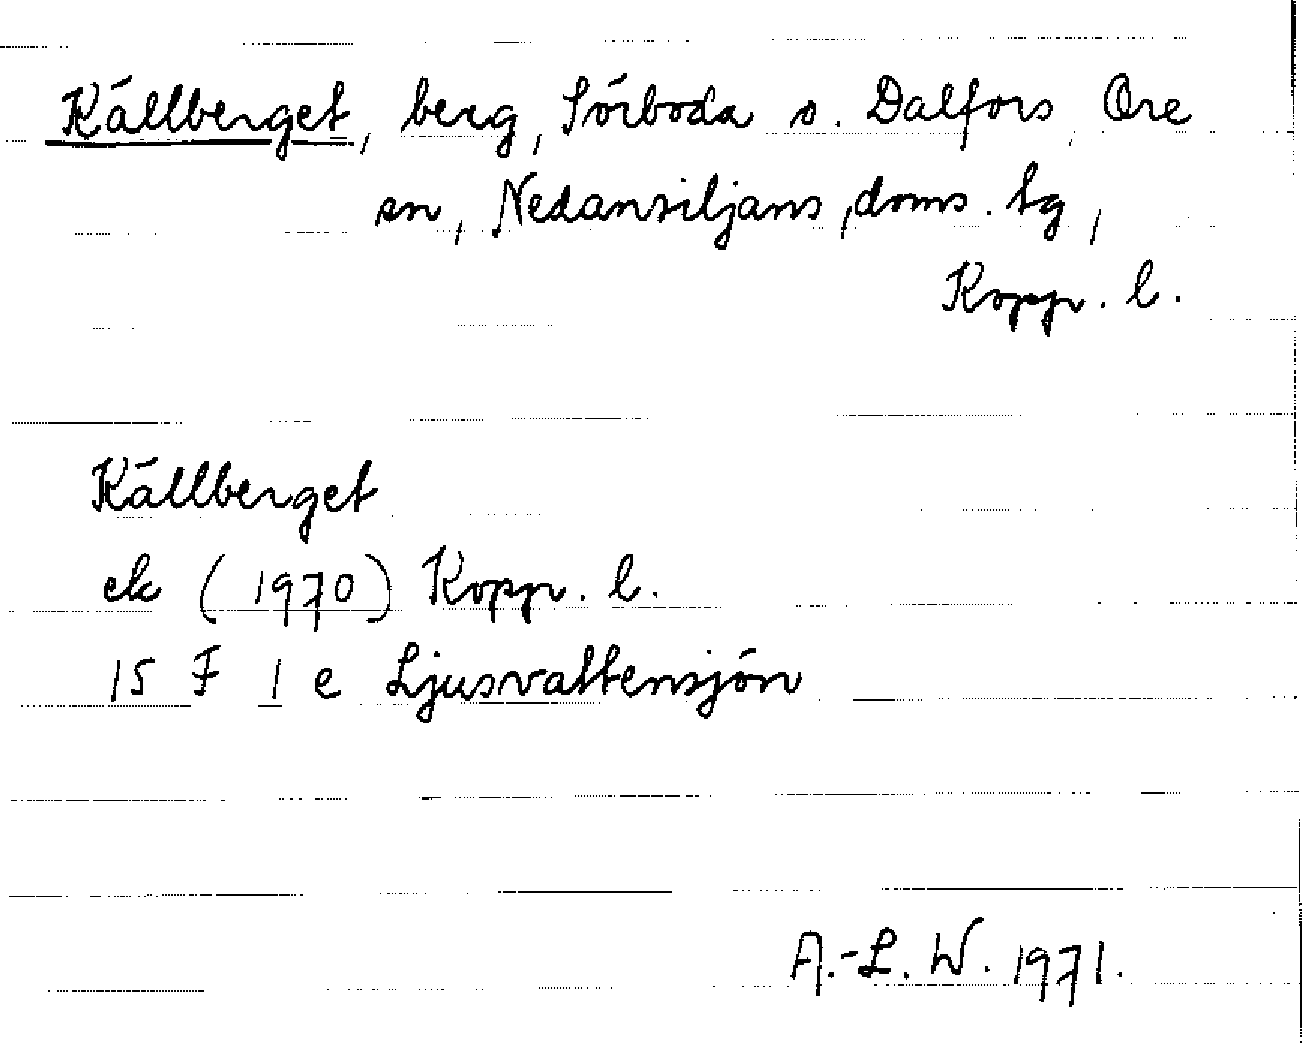 Källberget, berg, Sörboda s. Dalfors, Ore
sn, Nedansiljans doms. tg,
Kopp. l.
Källberget
ek (1970) Kopp. l.
15 F 1 e Ljusvattensjön
A.-L. W. 1971.